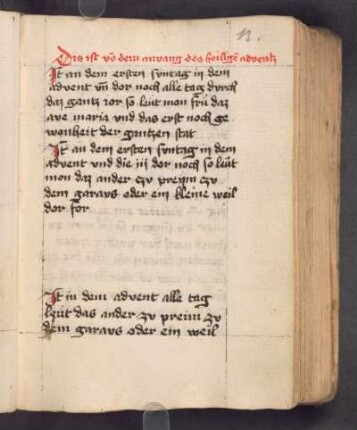 Das ist vō dem anvang des heiligē adventz
It an dem ersten suntag in dem
advent vn̄ dor noch alle tag durch
daz gantz ior so leut mon frű daz
ave maria vnd das erst noch ge
wonheit der gantzen stat
It an dem ersten suntag in dem
advent vnd die iii dor noch so leűt
mon daz ander czv preim czv
dem garavs oder ein kleine weil
dor for
It in dem advent alle tag
leűt das ander zv preim zv
dem garavs oder ein weil